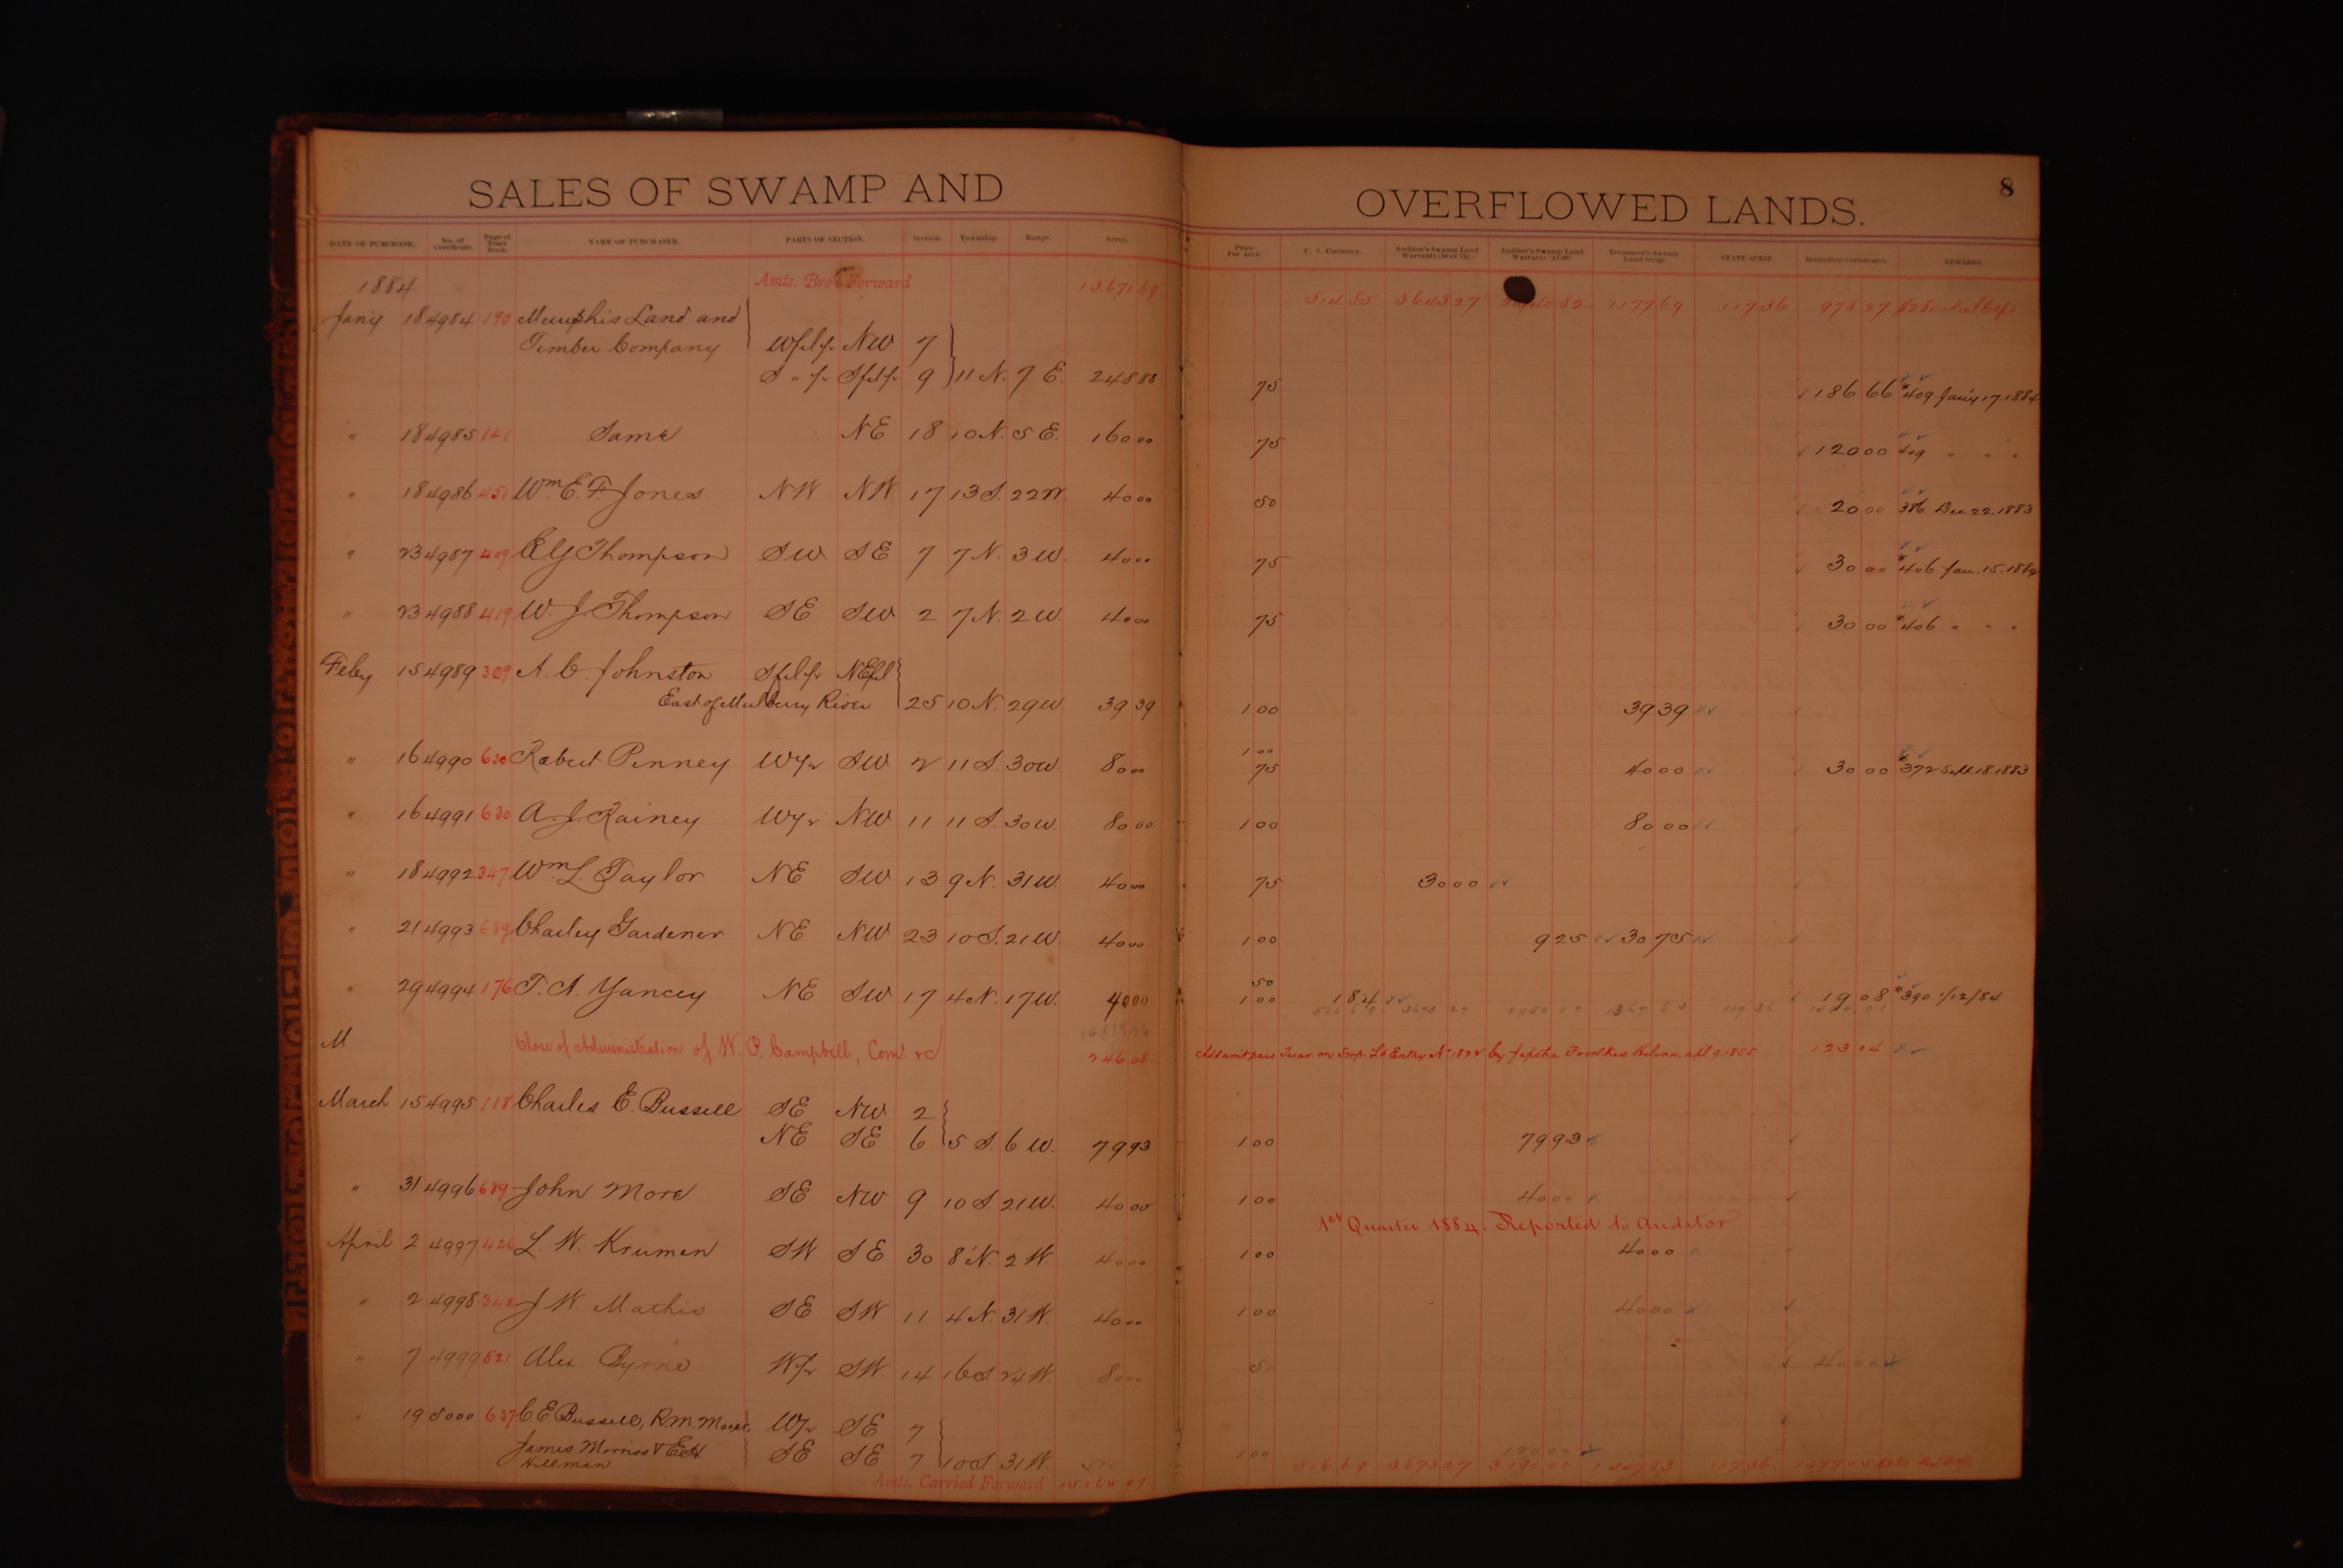 SALES OF SWAMP AND OVERFLOWED LANDS. 8
DATE OF PURCHASE. No. of Certificate. Page of Tract Book. NAME OF PURCHASER. PARTS OF SECTION. Section. Township. Range. Acres. Price Per Acre. U. S. Currency. Auditor's Swamp Land Warrants (50 or 75c.) Auditor's Swamp Land Warrants ($1.00) Treasurer's Swamp Land Scrip. STATE SCRIP. Refunding Certificates. REMARKS.
1884 Amts. Bro't Forward 13.671.69 514 85 3643 27 1177 69 117 36 975 27
Jan'y 18 4984 190 Memphis Land and
Timber Company Wfrl fr NW 7
S " fr Sfrl fr 9 11 N. 7 E. 248 88 75 186 66 409 Jan'y 17. 1884
" 18 4985 141 Same NE 18 10 N. 5 E. 160 00 75 120 00 409 " " "
" 18 4986 451 Wm. E. F. Jones NW NW 17 13 S. 22 W. 40 00 50 20 00 386 Dec 22. 1883
" 23 4987 409 Thompson SW SE 7 7 N. 3 W. 40 00 75 30 00 #406 Jan. 15. 1884
" 23 4988 419 W. J. Thompson SE SW 2 7 N. 2 W. 40 00 75 30 00 #406 " " "
Feby 15 4989 309 A. C. Johnston Sfrl fr NEfrl
East of Mulberry River 25 10 N. 29 W. 39 39 1 00 39 39
" 16 4990 630 Robert Penney W fr SW 2 11 S. 30 W. 80 00 1 00 75 40 00 30 00 #372 Sept. 18. 1883
" 16 4991 630 A. J. Rainey W fr NW 11 11 S. 30 W. 80 00 1 00 80 00
" 18 4992 347 Wm L. Taylor NE SW 13 9 N. 31 W. 40 00 75 30 00
" 21 4993 689 Charley Gardener NE NW 23 10 S. 21 W. 40 00 1 00 9 25 30 75
" 29 4994 176 T. A. Yancey NE SW 17 4 N. 17 W. 40 00 50 1 00 1 84 19 08 #390 1/12/84
516 69 3673 27 1367 83 117 36
M Close of Administration of W. P. Campbell, Com. 246 08 Add amt paid Treas. on Entry No 1822 by Helena apl 9. 1855 123 04
March 15 4995 118 Charles E. Bussell SE NW 2
NE SE 6 5 S. 6 W. 79 93 1 00 79 93
" 31 4996 689 John More SE NW 9 10 S. 21 W. 40 00 1 00 40 00
1st Quarter 1884 - Reported to Auditor
April 2 4997 426 L. W. Kruman SW SE 30 8 N. 2 W. 40 00 1 00 40 00
" 2 4998 342 J. W. Mathis SE SW 11 4 N. 31 W. 40 00 1 00 40 00
" 7 4999 521 Alex. Byrne W fr SW 14 16 S. 24 W. 80 00 50 40 00
" 19 5000 637 C. E. Bussell, R. M. W fr SE 7
James Morriss & SE SE 7 10 S 31 W. 1 00 120 00
Hillman
Amts. Carried Forward 516 69 3673 27 3190 00 117 36